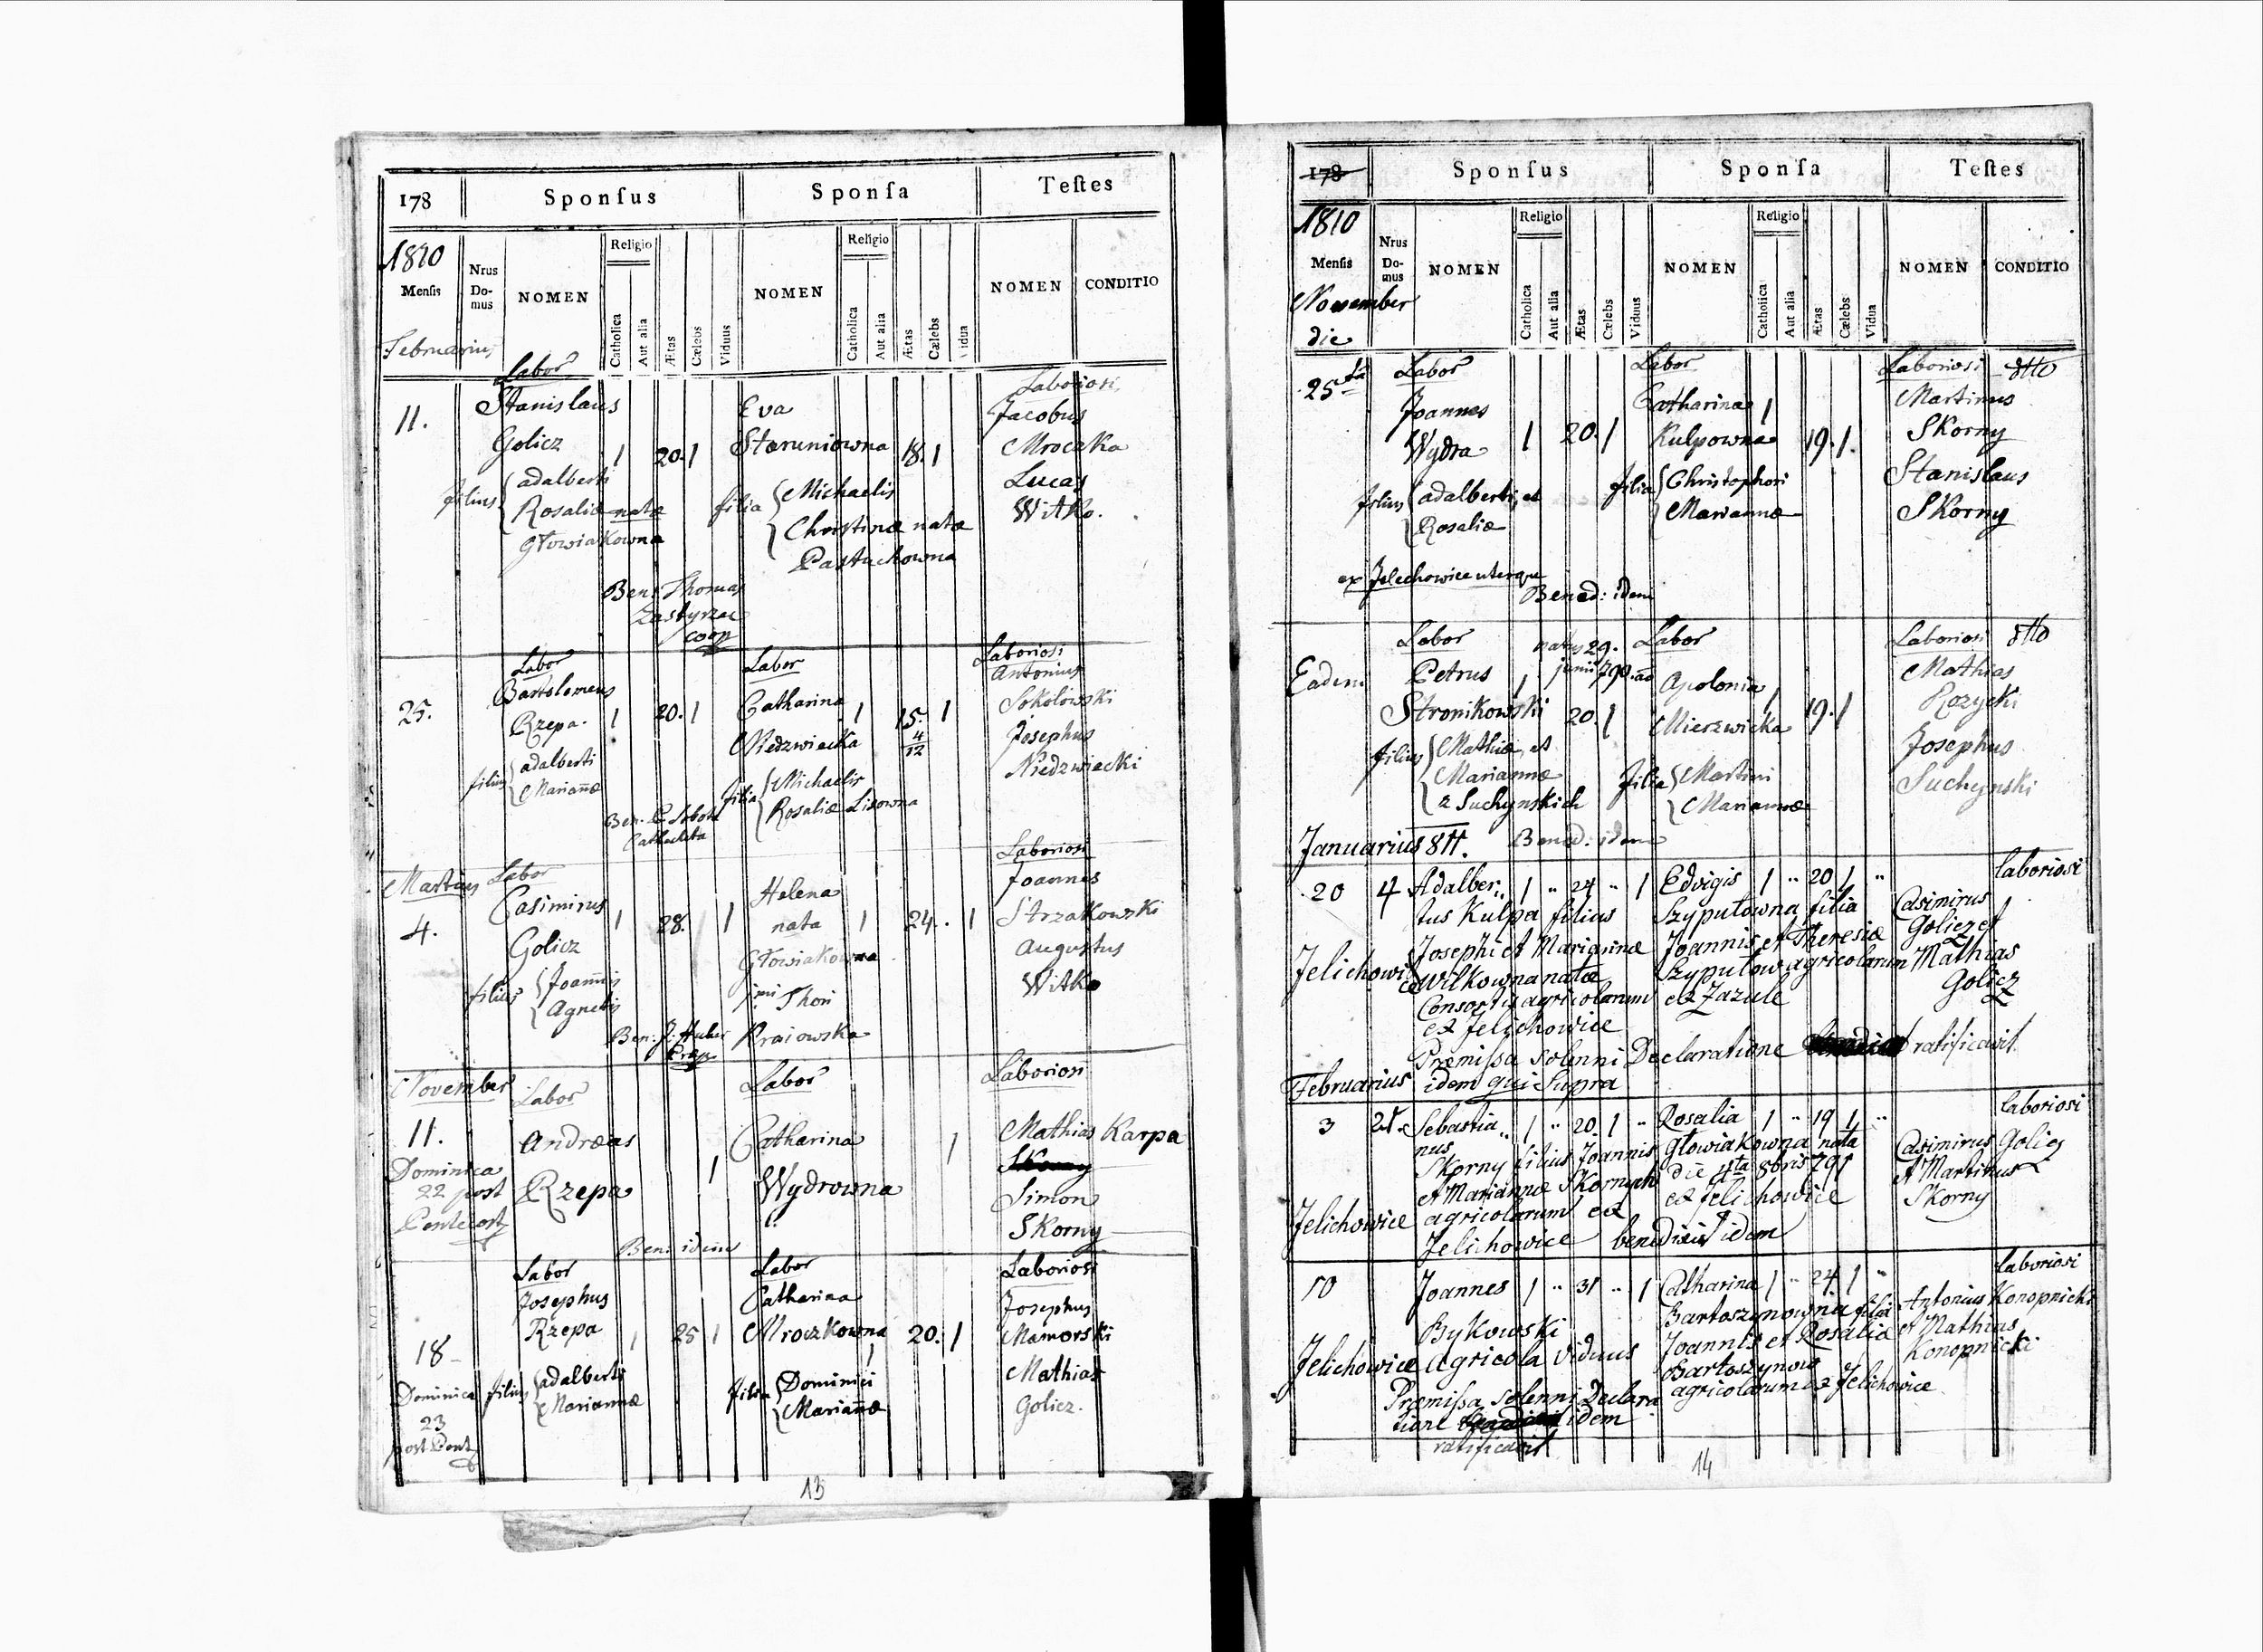 178
Sponſus
Sponſa
Teſtes
1810
Menſis
Nrus Do-mus
NOMEN
Religio
Catholica
Aut alia
Ætas
Cælebs
Viduus
NOMEN
Religio
Catholica
Aut alia
Ætas
Cælebs
idua
NOMEN
CONDITIO
Februarius
Labor
Laboriosi
11.
Stanislaus
Eva
Jacobus
Golicz
1
20.
1
Staruniowna
18.
1
Mroczka
filius
adalberti
filia
Michaelis
Lucas
Rosaliæ natæ
Christinæ natæ
Witko.
Głowiakowna
Pastuchowna
Ben: Thomas
Zastyrzec
coop
Labor
Labor
Laboriosi
25.
Bartolomeus
Catharina
Antonius
Rzepa.
1
20.
1
Niedzwiecka
1
15. 4/12
1
Sokolowski
filius
adalberti
filia
Michaelis
Josephus
Mariañæ
Rosaliæ Lisowna
Niedzwiecki
Martius
Labor
Laboriosi
4.
Casimirus
Helena
Joannes
Golicz
1
28.
1
nata
1
24.
1
Strzakowski
filius
Joannis
Głowiakowna
Augustus
Agnetis
Witko
Kraiowska
November
Labor
Labor
Laboriosi
11.
Andreas
Catharina
1
Mathias Karpa
Dominica
22 post
Rzepa
1
Wydrowna
Simon
Skorny
Ben: idem
Labor
Labor
Laboriosi
Josephus
Catharina
Josephus
18
Rzepa
1
25
1
Mroczkowna
1
20.
1
Mamorski
Dominica
filius
adalberti
filia
Dominici
Mathias
23
Mariannæ
Mariañæ
Golicz.
post Pent
13
178
Sponſus
Sponſa
Teſtes
1810
Menſis
Nrus Do-mus
NOMEN
Religio
Catholica
Aut alia
Ætas
Cælebs
Viduus
NOMEN
Religio
Catholica
Aut alia
Ætas
Cælebs
Vidua
NOMEN
CONDITIO
November
die
25ta
Labor
Labor
Laboriosi
Joannes
Catharina
1
Martinus
Wydra
1
20.
1
Kulpowna
19.
1.
Skorny
filius
adalberti, et
filia
Christophori
Stanislaus
Rosaliæ
Mariannæ
Skorny
ex Jelechowice uterque
Bened: idem
Labor
natus 29.
Labor
Laboriosi
Eadem
Petrus
1
junii 790.
Apolonia
1
Mathias
Stronikowski
20.
1
Mierzwicka
19.
1
Rozycki
filius
Mathiæ, et
filia
Martini
Josephus
Mariannæ
Mariannæ
Suchynski
z Suchynskich
Januarius 811.
Bened: idem
20
4
Adalber
1
24
1
Edvigis
1
20
1
laboriosi
tus Kulpa filius
Szyputowna filia
Casimirus
Josephi et Mariannæ
Joannis et Theresiæ
Golicz et
Jelichowi
ce
Wilkowna natæ
Szyputow agricolarum
Mathias
Consortis agricolarum
ex Zazule
Golicz
ex Jelichowice
Præmiſsa solenni Declaratione
ratificavit.
Februarius
idem qui Supra
3
Sebastia
1
20.
1
Rosalia
1
19
1
laboriosi
nus
Głowiakowna nata
Casimirus Golicz
Skorny filius Joannis
die 4ta 8bris 791
et Martinus
et Mariannæ Skornych
ex Jelichowice
Skorny
Jelichowice
agricolarum ex
Jelichowice
benedixit idem
10
Joannes
1
31
1
Catharina
1
24
1
laboriosi
Bykowski
Bartoszynowna filia
Antonius Konopnicki
Jelichowice
Agricola viduus
Joannis et Rosaliæ
et Mathias
Bartoszynow
Konopnicki
Præmiſsa solenni Declara
agricolarum ex Jelichowice
tione
idem
ratificavit
14